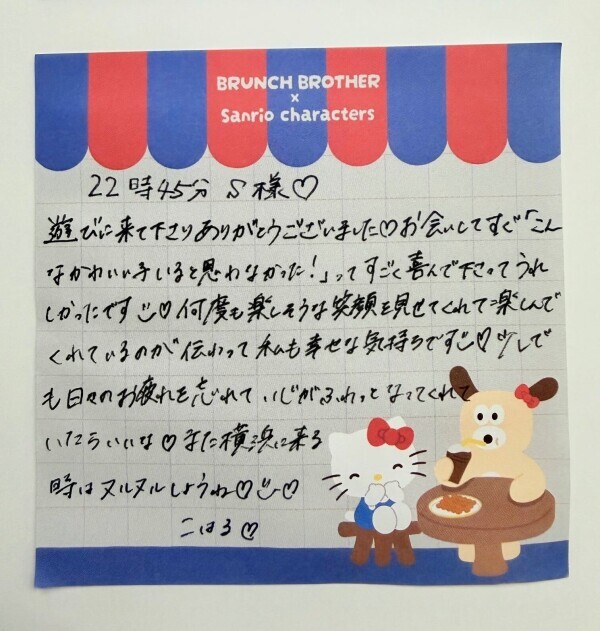 BRUNCH BROTHER
×
Sanrio characters
22時45分 S様♡
遊びに来て下さりありがとうございました♡お会いしてすぐ「こん
なかわいい子いると思わなかった!」ってすごく喜んで下さってうれ
しかったです♡何度も楽しそうな笑顔を見せてくれて楽しんで
くれているのが伝わって私も幸せな気持ちです♡少しで
も日々のお疲れを忘れて いじがふわっとなってくれて
いたらいいな♡また横浜に来る
時はヌルヌルしようね♡♡
こはる♡